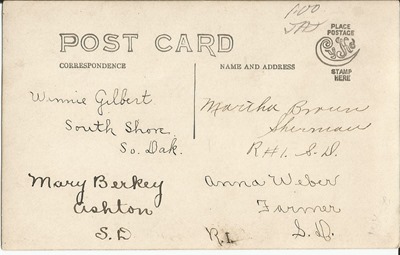 1.00
POST CARD
PLACE
POSTAGE
STAMP
HERE
CORRESPONDENCE
NAME AND ADDRESS
Winnie Gilbert
South Shore
So. Dak.
Mary Berkey
Ashton
S.D
Martha Brown
Sherman
R#1. S.D.
Anna Weber
Farmer
R.1 S.D.